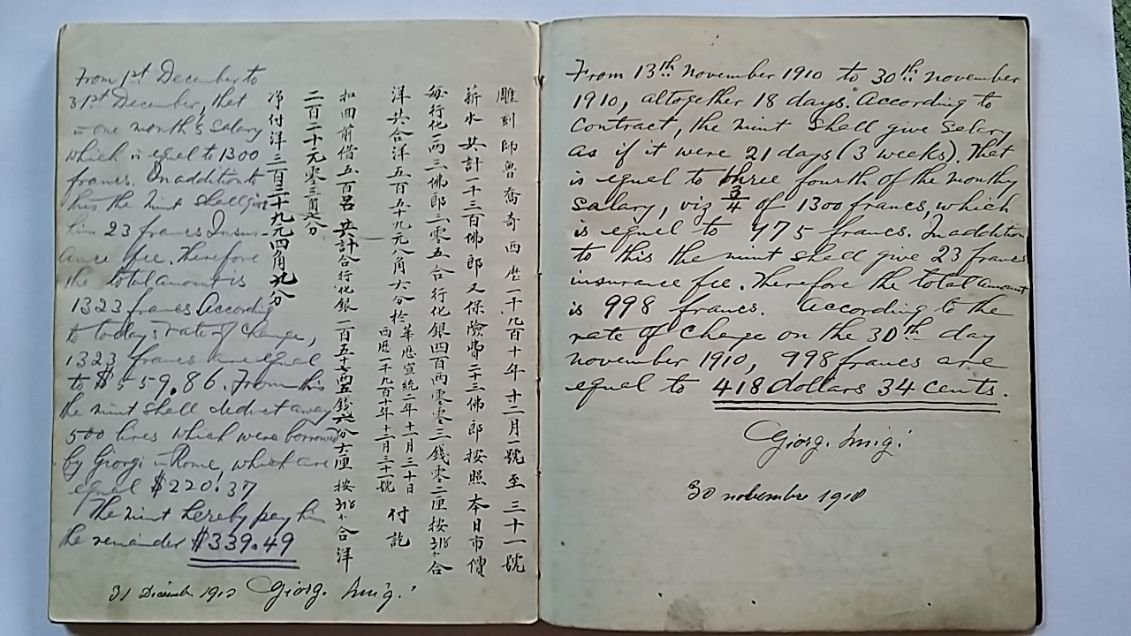 From 1st December to
31st December, that
is one month's salary
which is equal to 1300
francs. In addition to
this the mint shall give
him 23 francs Insur-
ance fee. Therefore
the total amount is
1323 francs According
to today's rate of change,
1323 francs are equal
to $559.86. From this
the mint shall deduct away
500 lires which were borrowed
by Giorgi in Rome, which are
equal $220.37
The mint hereby pay him
the remainder $339.49
31 1910 Giorg. Luig.
雕刻師魯喬奇西歷一千九百十年十二月一號至三十一號
薪水共計一千三百佛郎又保險費二十三佛郎按照本日市價
每行化一兩三佛郎三零五合行化銀四百兩零零三錢零二厘按合
洋共合洋五百五十九元八角六分於
華歷宣統二年十一月三十日
西歷一千九百十年十二月三十一號
付訖
扣回前借五百呂共計合行化銀一百五十七兩五錢六分七厘按合洋
二百二十元零三角七分
净付洋三百三十九元四角九分
From 13th November 1910 to 30th november
1910, altogether 18 days. According to
Contract, the mint shall give Salary
as if it were 21 days (3 weeks). That
is equal to three fourth of the monthly
Salary, viz 3/4 of 1300 francs, which
is equal to 975 francs. In addition
to this the mint shall give 23 francs
insurance fee. Therefore the total amount
is 998 francs. According to the
rate of Change on the 30th day
november 1910, 998 francs are
equal to 418 dollars 34 cents.
Giorg. Luig.
30 novembre 1910